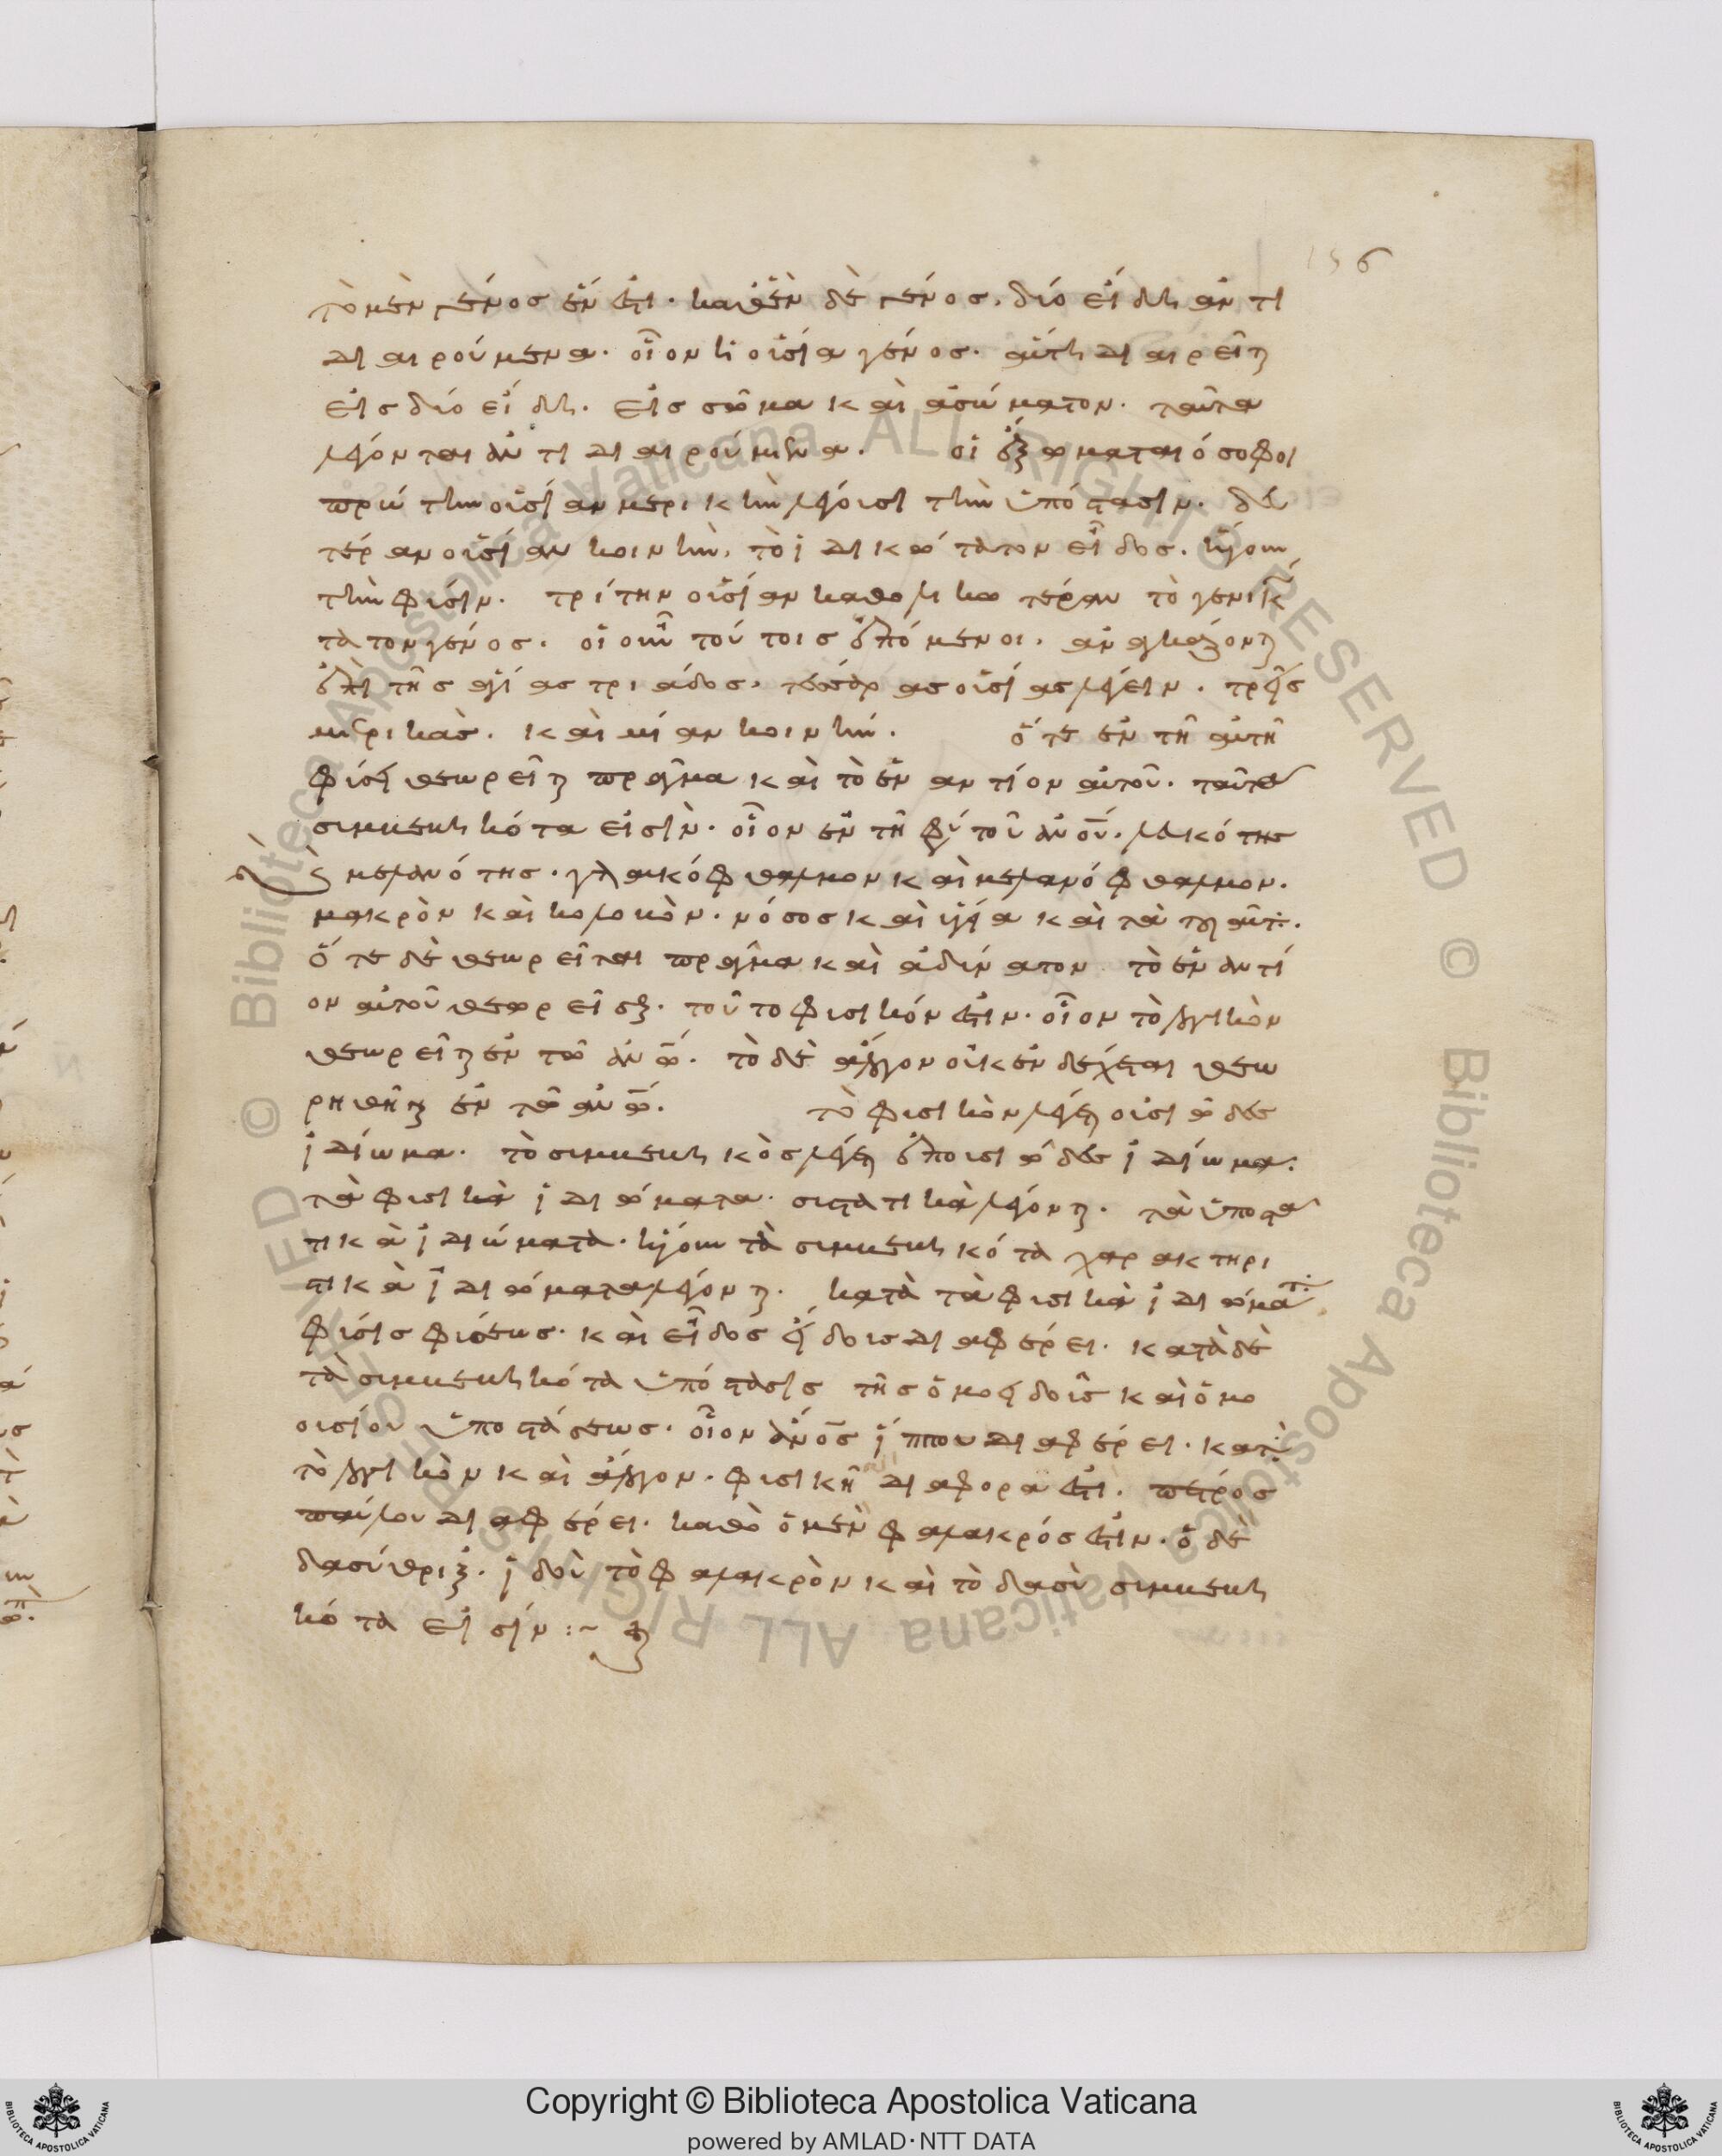 156
τὸ μὲν γένος ἕν ἐστι· καθ' ἓν δὲ γένος, δύο εἴδη ἀντι
διαιρούμενα· οἷον ἡ οὐσία γένος· αὕτη διαιρεῖται
εἰς δύο εἴδη· εἰς σῶμα καὶ ἀσώματον· ταῦτα
λέγονται ἀντιδιαιρούμενα. οἱ ἔξω ματαιόσοφοι
πρώτην οὐσίαν μερικὴν λέγουσι τὴν ὑπόστασιν· δευ
τέραν οὐσίαν κοινὴν, τὸ ἰδικώτατον εἶδος, ἤγουν
τὴν φύσιν· τρίτην οὐσίαν καθολικωτέραν τὸ γενικώ
τατον γένος· οἱ οὖν τούτοις ἑπόμενοι, ἀναγκάζονται
ἐπὶ τῆς ἁγίας τριάδος, τέσσαρας οὐσίας λέγειν· τρεῖς
μερικὰς, καὶ μίαν κοινήν. ὅτε ἐν τῇ αὐτῇ
φύσει θεωρεῖται πρᾶγμα καὶ τὸ ἐναντίον αὐτοῦ· ταῦτα
συμβεβηκότα εἰσὶν· οἷον ἐν τῇ φύσει τοῦ ἀνου· λευκότης
καὶ μελανότης· γλαυκόφθαλμον καὶ μελανόφθαλμον·
μακρὸν καὶ κολοβὸν· νόσος καὶ ὑγεία καὶ τὰ τοιαῦτα·
ὅτε δὲ θεωρεῖται πρᾶγμα καὶ ἀδύνατον τὸ ἐναντί
ον αὐτοῦ θεωρεῖσθαι· τοῦτο φυσικόν ἐστιν· οἷον τὸ λογικὸν
θεωρεῖται ἐν τῷ ἀνω· τὸ δὲ ἄλογον οὐκ ἐνδέχεται θεω
ρηθῆναι ἐν τῷ ἀνω. τὸ φυσικὸν λέγεται οὐσιῶδες
ἰδίωμα· τὸ συμβεβηκὸς λέγεται ἐπουσιῶδες ἰδίωμα·
τὰ φυσικὰ ἰδιώματα· συστατικὰ λέγονται· τὰ ὑποστα
τικὰ ἰδιώματα· ἤγουν τὰ συμβεβηκότα χαρακτηρι
στικὰ ἰδιώματα λέγονται· κατὰ τὰ φυσικὰ ἰδιώματα
φύσις φύσεως· καὶ εἶδος εἴδους διαφέρει· κατὰ δὲ
τὰ συμβεβηκότα ὑπόστασις τῆς ὁμοειδοῦς καὶ ὁμο
ουσίου ὑποστάσεως· οἷον ἄνος ἵππου διαφέρει· κατὰ
τὸ λογικὸν καὶ ἄλογον· φυσικὴ διαφορά ἐστι· πέτρος
παύλου διαφέρει· καθὸ ὁ μὲν φαλακρός ἐστιν· ὁ δὲ
δασύθριξ· ἰδοὺ τὸ φαλακρὸν καὶ τὸ δασὺ συμβεβη
κότα εἰσίν :~